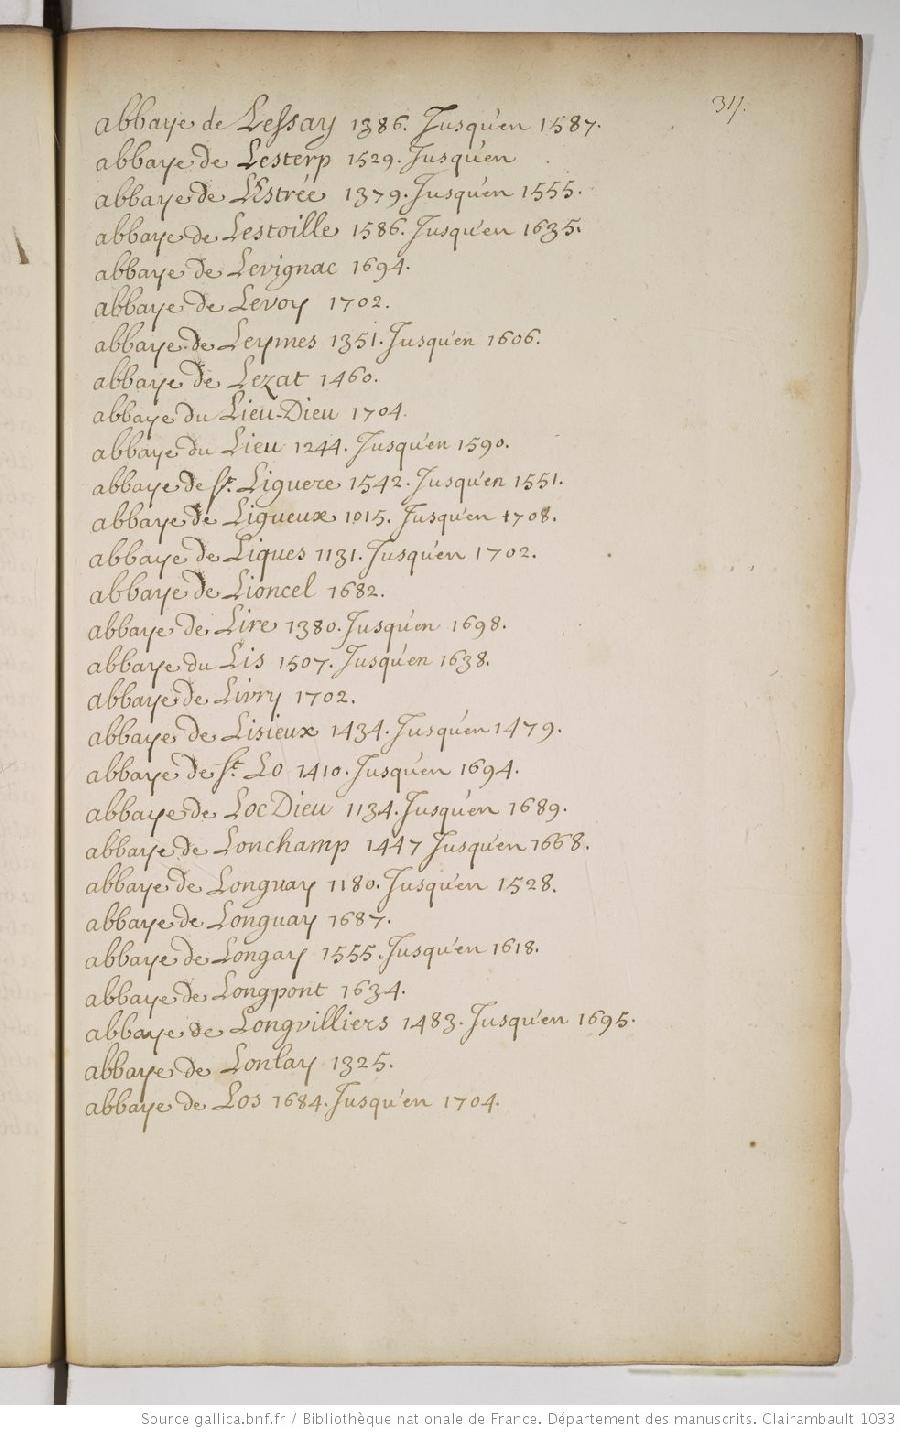 317.
abbaye de Lessay 1386. Jusqu'en 1587.
abbaye de Lesterp 1529. Jusqu'en
abbaye de L'Estrée 1379. Jusqu'en 1555.
abbaye de Lestoille 1586. Jusqu'en 1635.
abbaye de Levignac 1694.
abbaye de Levoy 1702.
abbaye de Leymes 1351. Jusqu'en 1606.
abbaye de Lezat 1460.
abbaye du Lieu-Dieu 1704.
abbaye du Lieu 1244. Jusqu'en 1590.
abbaye de st. Liguere 1542. Jusqu'en 1551.
abbaye de Ligueux 1115. Jusqu'en 1708.
abbaye de Liques 1131. Jusqu'en 1702.
abbaye de Lioncel 1682.
abbaye de Lire 1380. Jusqu'en 1698.
abbaye du Lis 1507. Jusqu'en 1638.
abbaye de Livry 1702.
abbaye de Lisieux 1434. Jusqu'en 1479.
abbaye de st. Lo 1410. Jusqu'en 1694.
abbaye de Loc Dieu 1134. Jusqu'en 1689.
abbaye de Lonchamp 1447 Jusqu'en 1668.
abbaye de Longuay 1180. Jusqu'en 1528.
abbaye de Longuay 1687.
abbaye de Longay 1555. Jusqu'en 1618.
abbaye de Longpont 1634.
abbaye de Longvilliers 1483. Jusqu'en 1695.
abbaye de Lonlay 1325.
abbaye de Los 1684. Jusqu'en 1704.
Source gallica.bnf.fr / Bibliothèque nationale de France. Département des manuscrits. Clairambault 1033